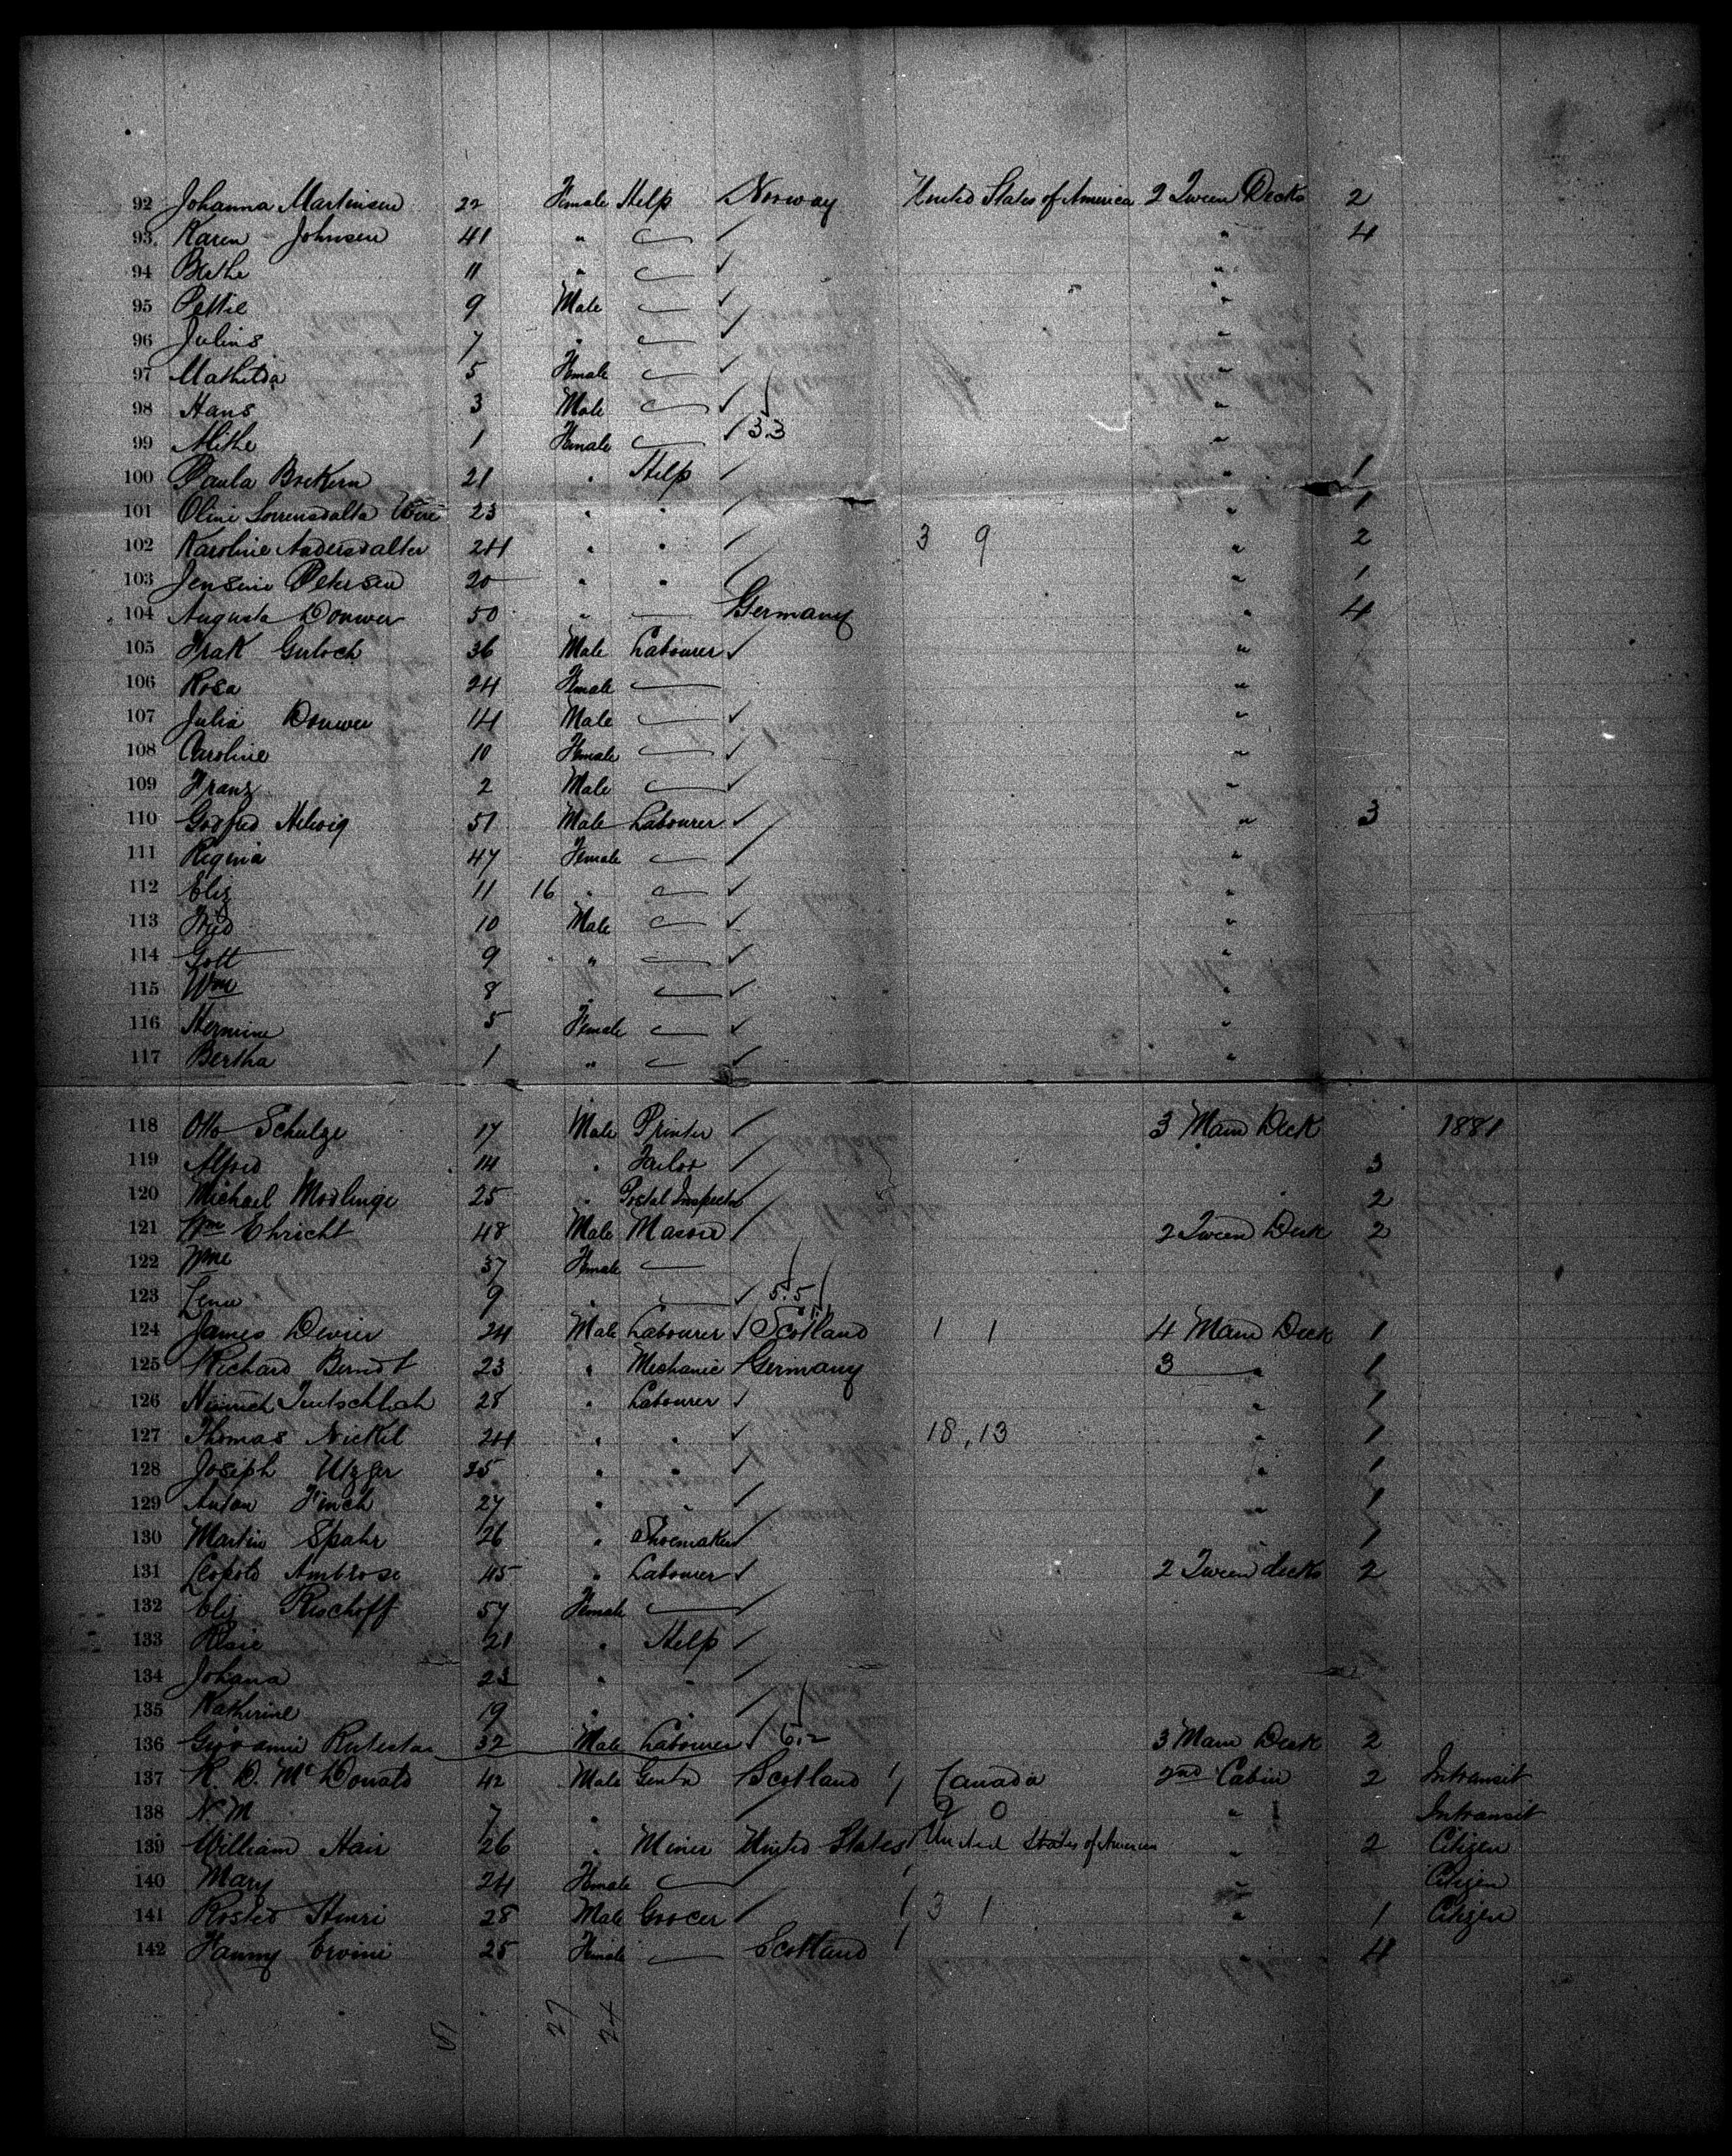 92 Johanna Martinsen 22 Female Help Norway United States of America 2 Tween Decks 2
93 Karen Johnsen 41 " — ✓ " 4
94 Berthe 11 " — ✓ "
95 Pettie 9 Male — ✓ "
96 Julius 7 " — ✓ "
97 Mathilda 5 Female — ✓ "
98 Hans 3 Male — ✓ "
99 Mithe 1 Female — ✓ 33 "
100 Paula 21 " Help ✓ " 1
101 Oline 23 " " ✓ " 1
102 Karoline Andersdalter 24 " " ✓ 3 9 " 2
103 Jensine Petersen 20 " " " 1
104 Augusta Donwer 50 " — Germany " 4
105 Frak Gerloch 36 Male Labourer ✓ "
106 Rosa 24 Female — "
107 Julia Donwer 14 Male — ✓ "
108 Caroline 10 Female — ✓ "
109 Franz 2 Male — ✓ "
110 Godfred Helwig 51 Male Labourer ✓ " 3
111 Regina 47 Female — ✓ "
112 Eliz 11 16 " — ✓ "
113 Fried 10 Male — ✓ "
114 Gott 9 " — ✓ "
115 Wm 8 " — ✓ "
116 Hermine 5 Female — ✓ "
117 Bertha 1 " — ✓ "
118 Otto Schulze 17 Male Printer ✓ 3 Main Deck 1881
119 Alfred 14 " Tailor ✓ 3
120 Michael Modlinge 25 " Postal Inspector ✓ " 2
121 Wm Ehricht 48 Male Mason ✓ 2 Tween Deck 2
122 Wme 37 Female —
123 Lene 9 " — ✓ 5.5
124 James Devier 24 Male Labourer ✓ Scotland 1 1 4 Main Deck 1
125 Richard Berndt 23 " Mechanic Germany 3 " 1
126 Heinrich 28 " Labourer ✓ " 1
127 Thomas Nickel 24 " " ✓ 18,13 " 1
128 Joseph Utzger 25 " " ✓ " 1
129 Anton Finch 27 " " ✓ " 1
130 Martin Spahr 26 " Shoemaker ✓ 1
131 Leopold Ambrose 45 " Labourer ✓ 2 Tween decks 2
132 Eliz Rischoff 57 Female — ✓
133 Rosie 21 " Help ✓
134 Johana 23 " " ✓
135 Katherine 19 " " ✓
136 Giovanni 32 Male Labourer ✓ 6.2 3 Main Deck 2
137 K. D. McDonald 42 Male Gentn Scotland Canada 2nd Cabin 2 Intransit
138 N. M 7 " ✓ 2 0 " Intransit
139 William Hair 26 " Miner United States United States of America " 2 Citizen
140 Mary 24 Female — ✓ " Citizen
141 Rosted Henri 28 Male Grocer ✓ 3 1 " 1 Citizen
142 Fanny Ervine 25 Female — Scotland " 4
51 27 24